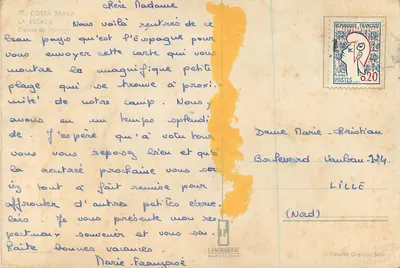 Chère Madame
17. COSTA BRAVA
LA ESCALA
Nous voilà rentrés de ce
bien pays qu'est l'Espagne pour
vous envoyer cette carte qui vous
montre la magnifique petite
plage qui se trouve à proxi-
mité de notre camp. Nous
avons eu un temps splendi-
de. J'espère qu'à votre tour
vous vous reposez bien et qu'à
la rentrée prochaine vous se-
rez tout à fait remise pour
affronter d'autres petites écoe-
lières Je vous présente mon res
pectueux souvenir et vous sou-
haite bonnes vacances.
Marie-Françoise
REPUBLIQUE FRANÇAISE
POSTES
0,20
Dame Marie-Christian
Boulevard Vauban
LILLE
(Nord)